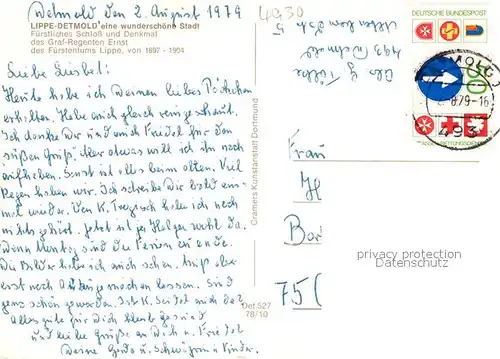 Detmold den 2. August 1979
LIPPE-DETMOLD eine wunderschöne Stadt
Fürstliches Schloß und Denkmal
des Graf-Regenten Ernst
des Fürstentums Lippe, von 1897 - 1904
Liebe Liesbet!
Heute habe ich Deinen lieben Päckchen
erhalten. Habe mich gleich reingeschaut.
Ich danke Dir und auch Friedel für den
süßen Gruß. Aber etwas will ich noch
aufheben. Sonst ist alles beim alten. Viel
Regen haben wir. Ich schreibe Dir bald ein-
mal wieder. Von K. habe ich noch
nichts gehört. Jetzt ist ja Helga wohl da.
Denn Montag sind die Ferien zu ende.
Die Bilder habe ich auch schon. Muß aber
erst noch Abzüge machen lassen. Sind
ganz schön geworden. Ist K. Seidel noch da?
Alles gute für Dich bleib gesund
und liebe Grüße an Dich u. Friedel
Deine Gerda u. Schwägerin u. Kinder.
Cramers Kunstanstalt Dortmund
Det 527
78/10
4930
493 Detmold
5
DEUTSCHE BUNDESPOST
DETMOLD
2.-8.79-16
493
Frau
H
Bar
75(
privacy protection
Datenschutz